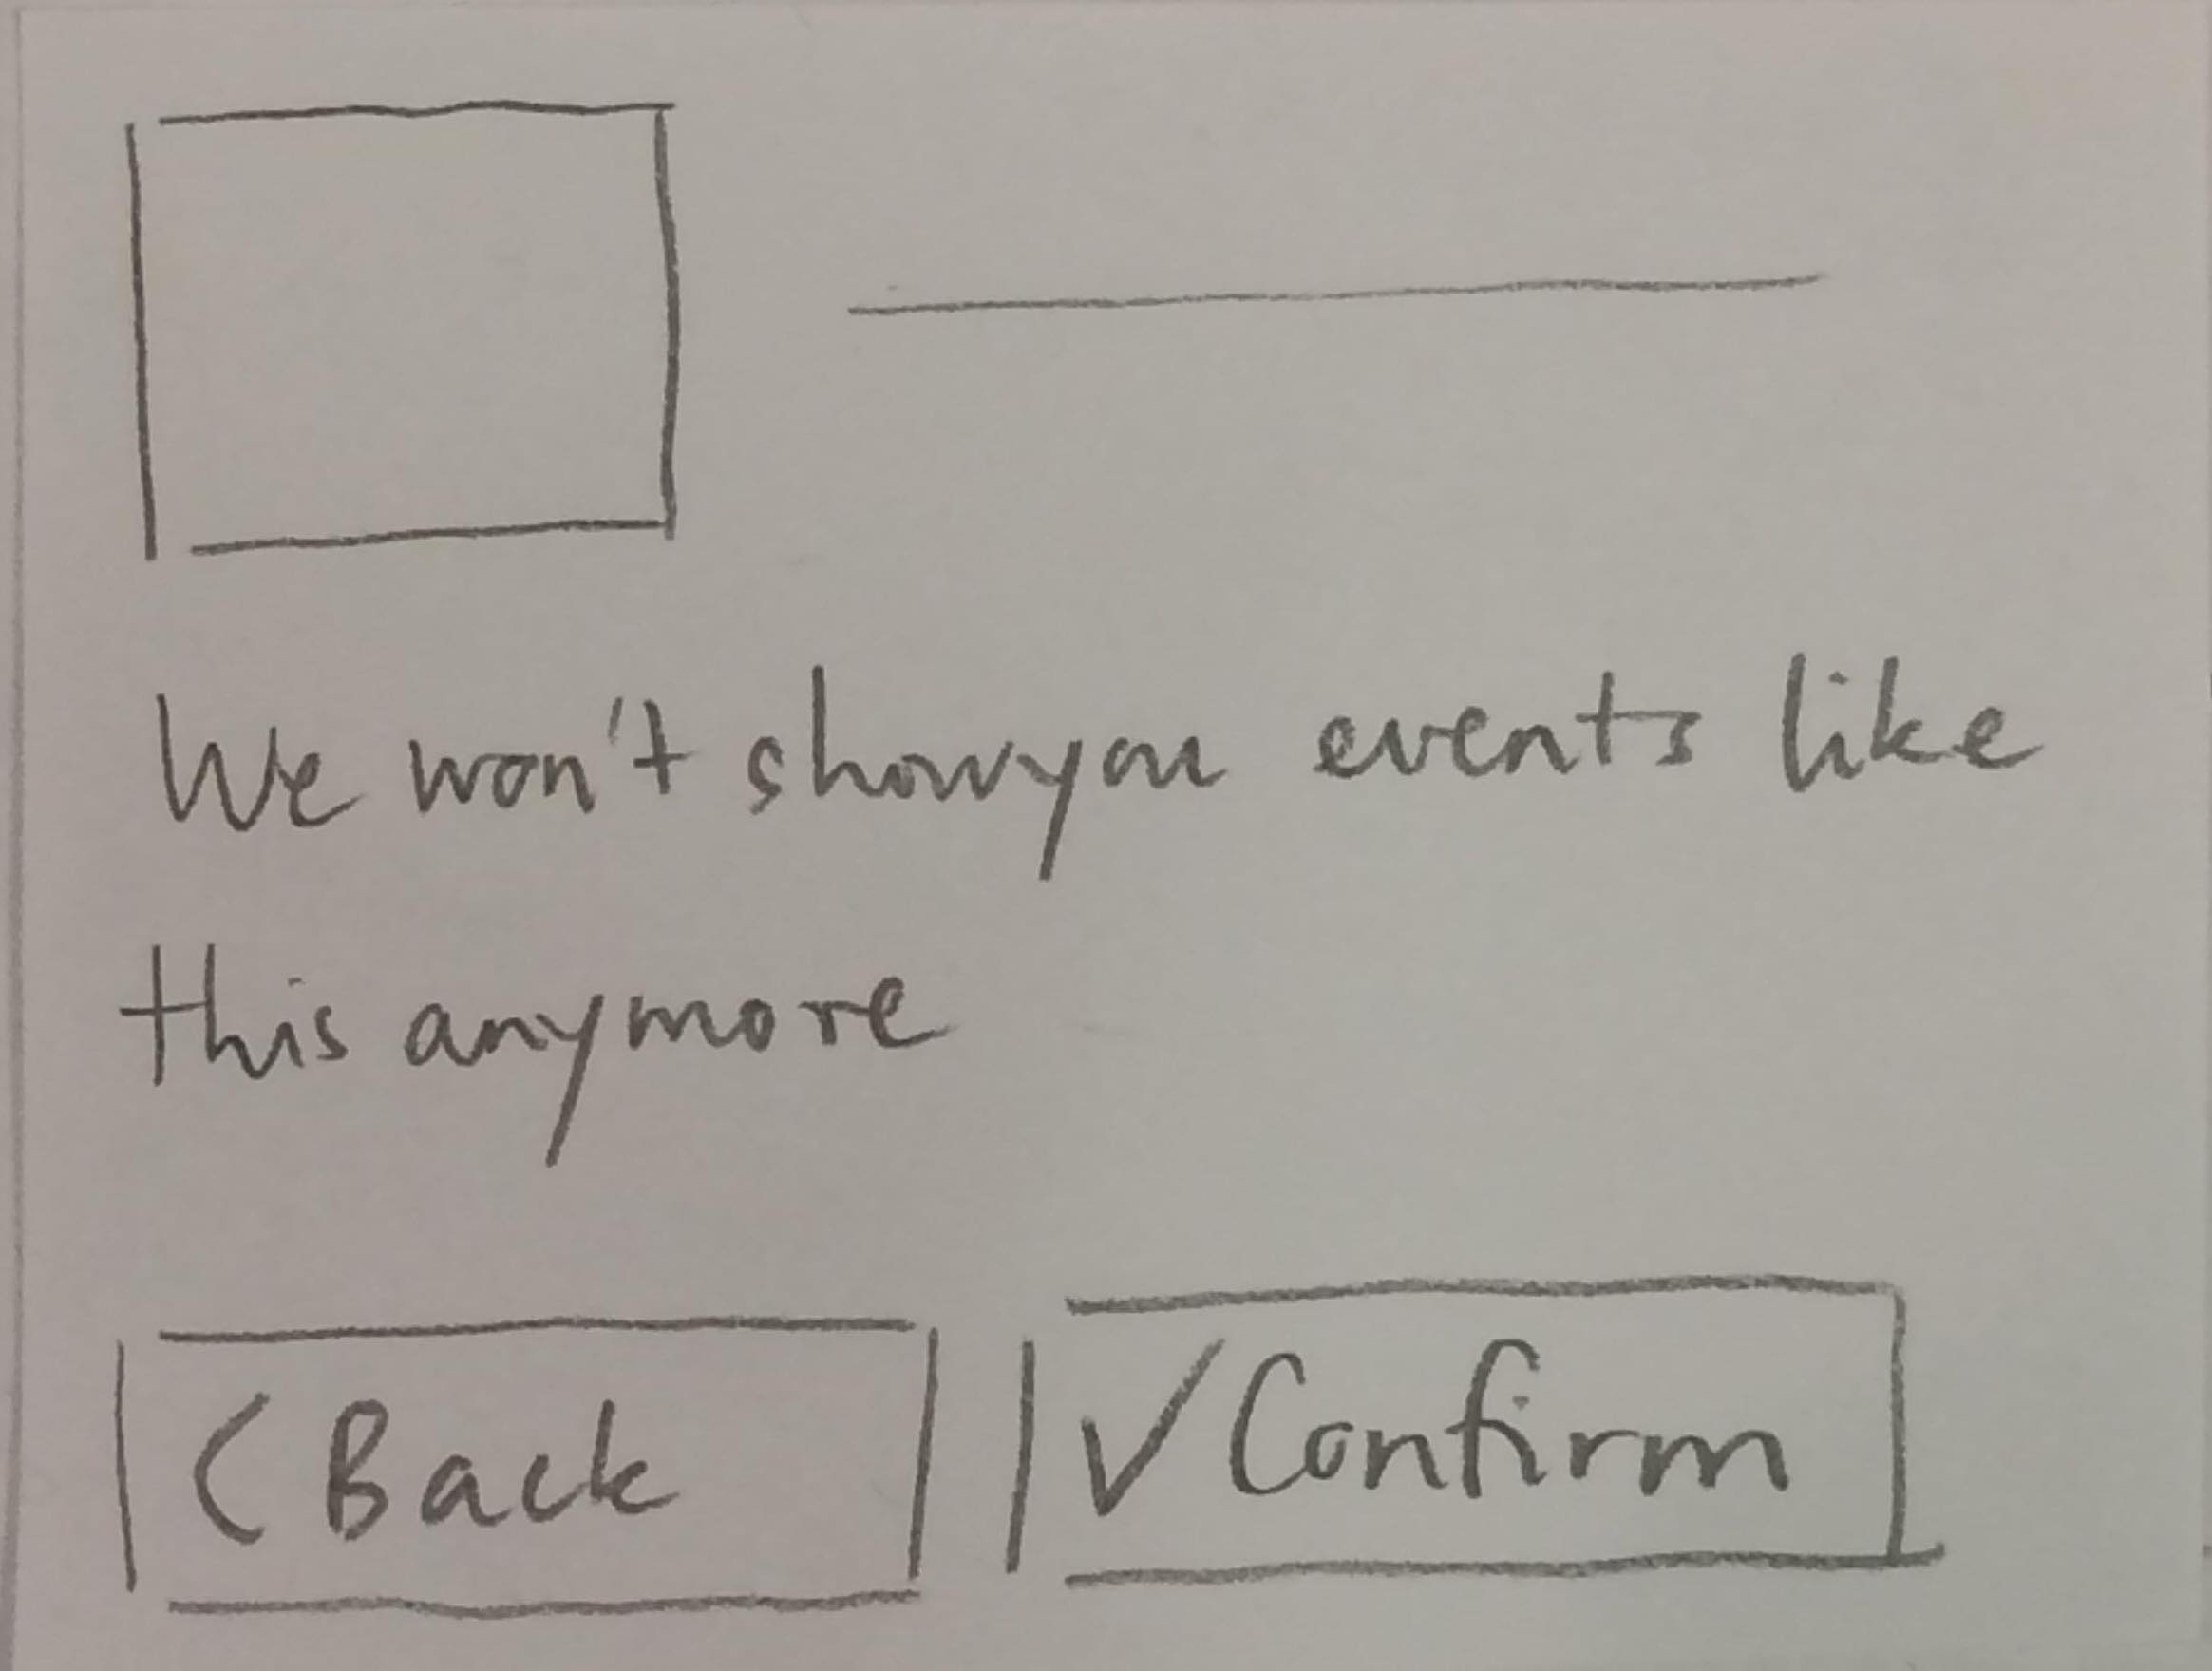 We won't show you events like
this anymore
< Back
✓ Confirm